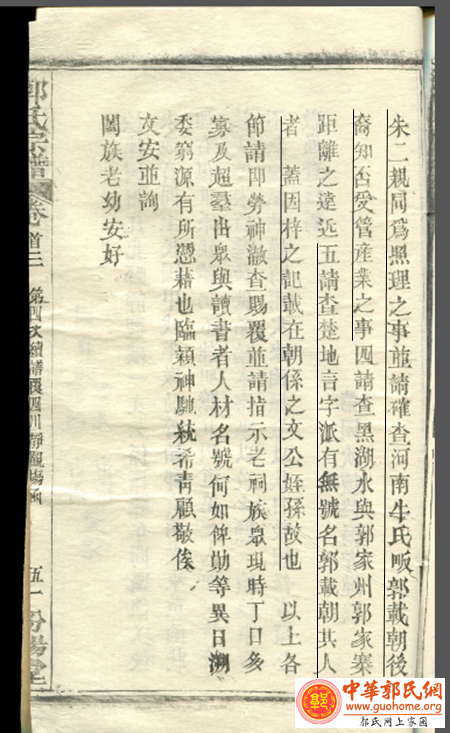 朱二親同爲照理之事並請確查河南牛氏畈郭載朝後
裔知否受管産業之事四請查黑湖水與郭家州郭家寨
距離之遠近五請查楚地言字派有無號名郭載朝其人
者 蓋因梓之記載在朝係之文公姪孫故也 以上各
節請即勞神澈查賜覆並請指示老祠族眾現時丁口多
寡及超羣出眾與讀書者人材名號何如俾勛等異日溯
委窮源有所憑藉也臨穎神馳統希青顧敬俟
文安並詢
闔族老幼安好
郭氏宗譜 卷首二 第四次續譜覆四川靜觀場函 五一 汾陽堂
中華郭氏網
www.guohome.org
郭氏网上家園